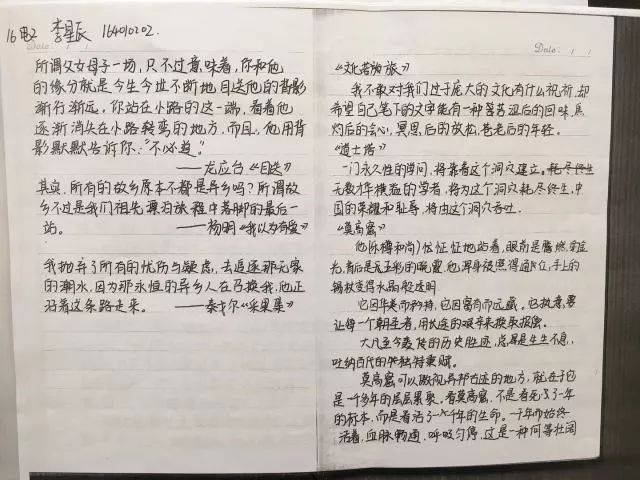 16电2 李星辰 164010202.
Date. / /
所谓父女母子一场,只不过意味着,你和他
的缘分就是今生今世不断地目送他的背影
渐行渐远。你站在小路的这一端,看着他
逐渐消失在小路转弯的地方,而且,他用背
影默默告诉你:“不必追”
——龙应台《目送》
其实,所有的故乡原本不都是异乡吗?所谓故
乡不过是我们祖先漂泊旅程中落脚的最后一
站。 ——杨明《我以为有爱》
我抛弃了所有的忧伤与疑虑,去追逐那无家
的潮水,因为那永恒的异乡人在召唤我,他正
沿着这条路走来。 ——泰戈尔《采果集》
Date. / /
《文化苦旅》
我不敢对我们过于庞大的文化有什么祝祈,却
希望自己笔下的文字能有一种苦涩后的回味,焦
灼后的会心,冥思后的放松,苍老后的年轻。
《道士塔》
一门永久性的学问,将靠着这个洞穴建立。
无数才华横溢的学者,将为这个洞穴耗尽终生,中
国的荣耀和耻辱,将由这个洞穴吞吐。
《莫高窟》
他(乐樽和尚)怔怔地站着,眼前是腾燃的金
光,背后是五彩的晚霞,他浑身被照得通红,手上的
锡杖也变得水晶般透明。
它因华美而矜持,它因富有而远藏。它执意要
让每一个朝圣者,用长途的艰辛来换取报偿。
大凡至今轰传的历史胜迹,总是生生不息,
吐纳百代的独特禀赋。
莫高窟可以傲视异邦古迹的地方,就在于它
是一千多年的层层累聚。看莫高窟,不是看死了一千年
的标本,而是看活了一千年的生命。一千年而始终
活着,血脉畅通、呼吸匀停,这是一种何等壮阔